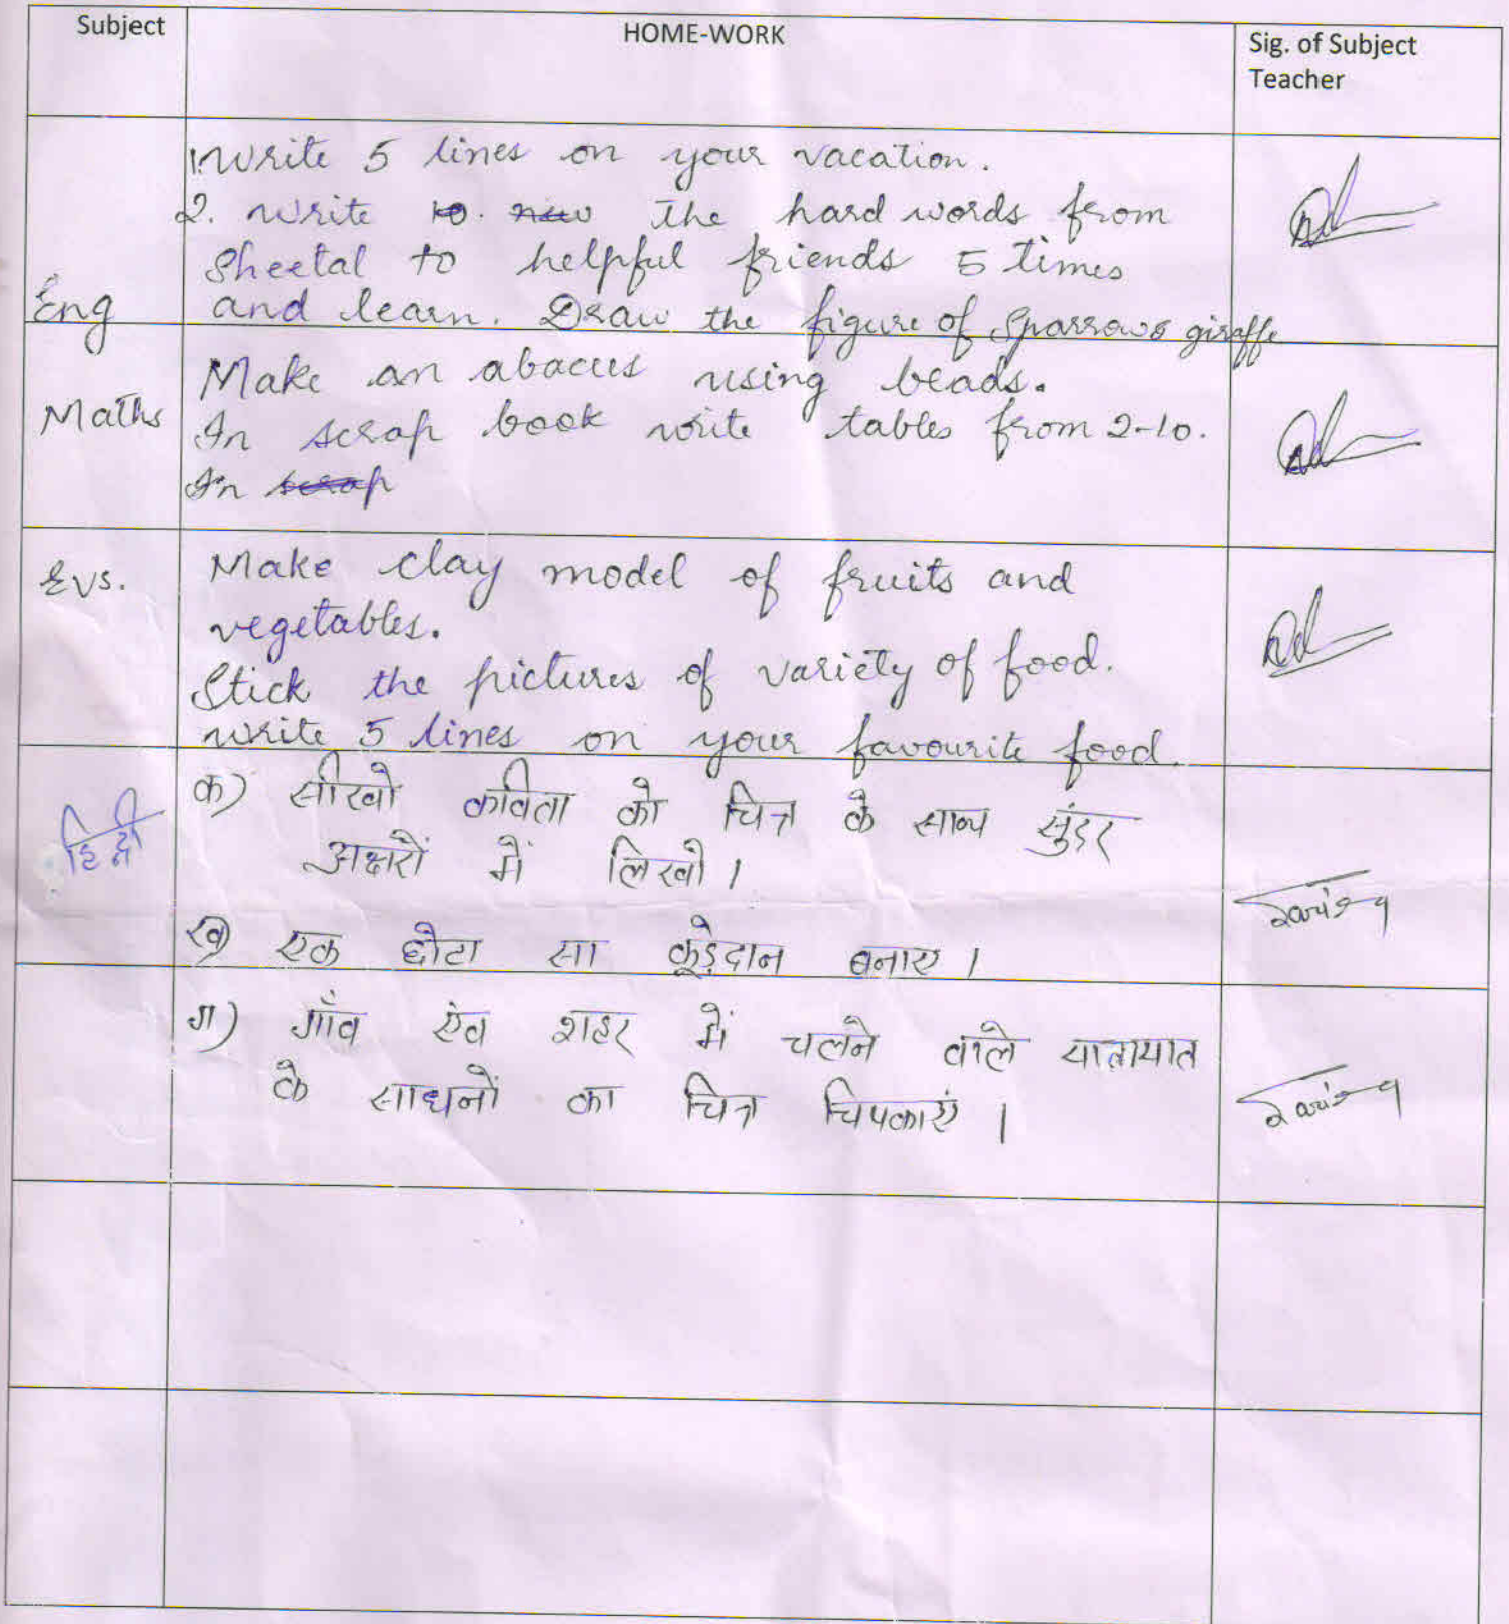 Subject
HOME-WORK
Sig. of Subject
Teacher
1. Write 5 lines on your vacation.
2. Write the hard words from
Sheetal to helpful friends 5 times
Eng
and learn. Draw the figure of Sparrows giraffe
Make an abacus using beads.
Maths
In scrap book write tables from 2-10.
In scrap
Evs.
Make clay model of fruits and
vegetables.
Stick the pictures of variety of food.
write 5 lines on your favourite food.
हिन्दी
क) सीखो कविता को चित्र के साथ सुंदर
अक्षरों में लिखो।
ख) एक छोटा सा कूड़ेदान बनाए।
ग) गाँव एंव शहर में चलने वाले यातायात
के साधनों का चित्र चिपकाएं।